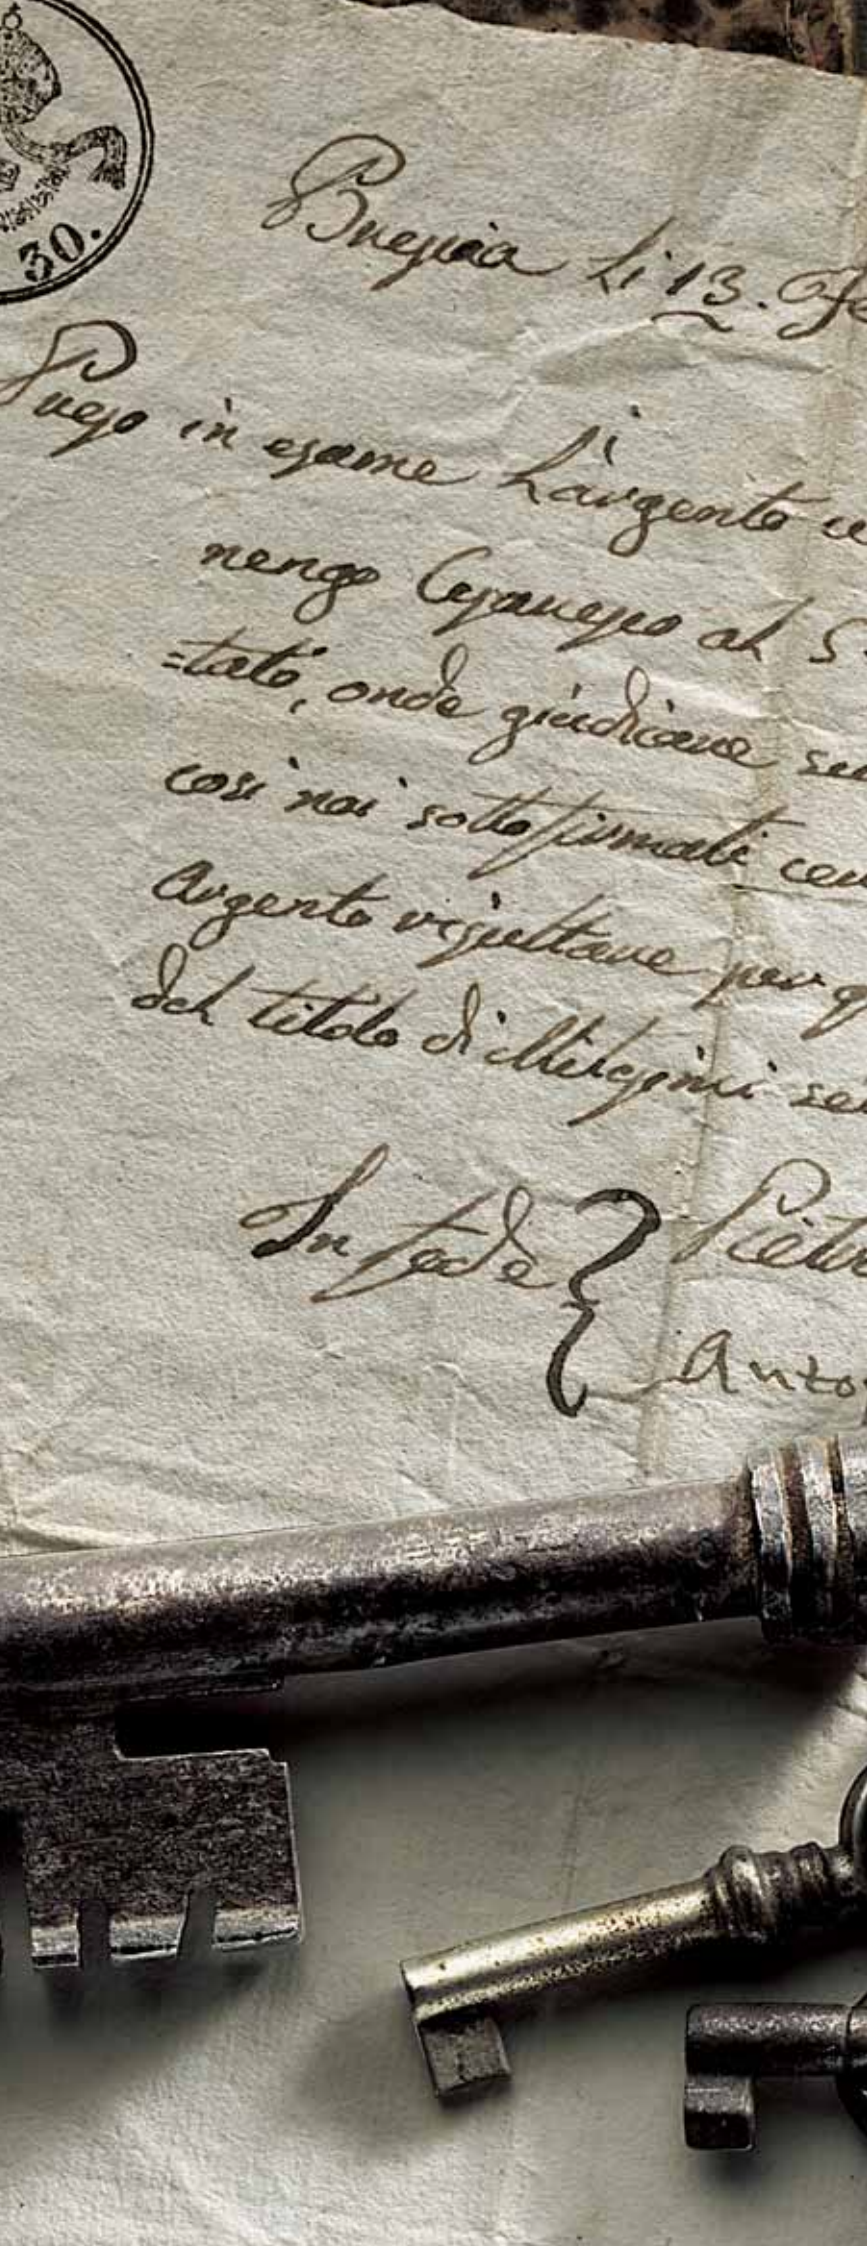 30.
Brescia Li 13. Fe
Preso in esame L'argento ce
nengo Cesaregio al 5
=tato, onde giudicare se
così noi sottofirmati cer
Argento risultare per q
del titolo di Milesimi se
In fede } Pietr
Anto